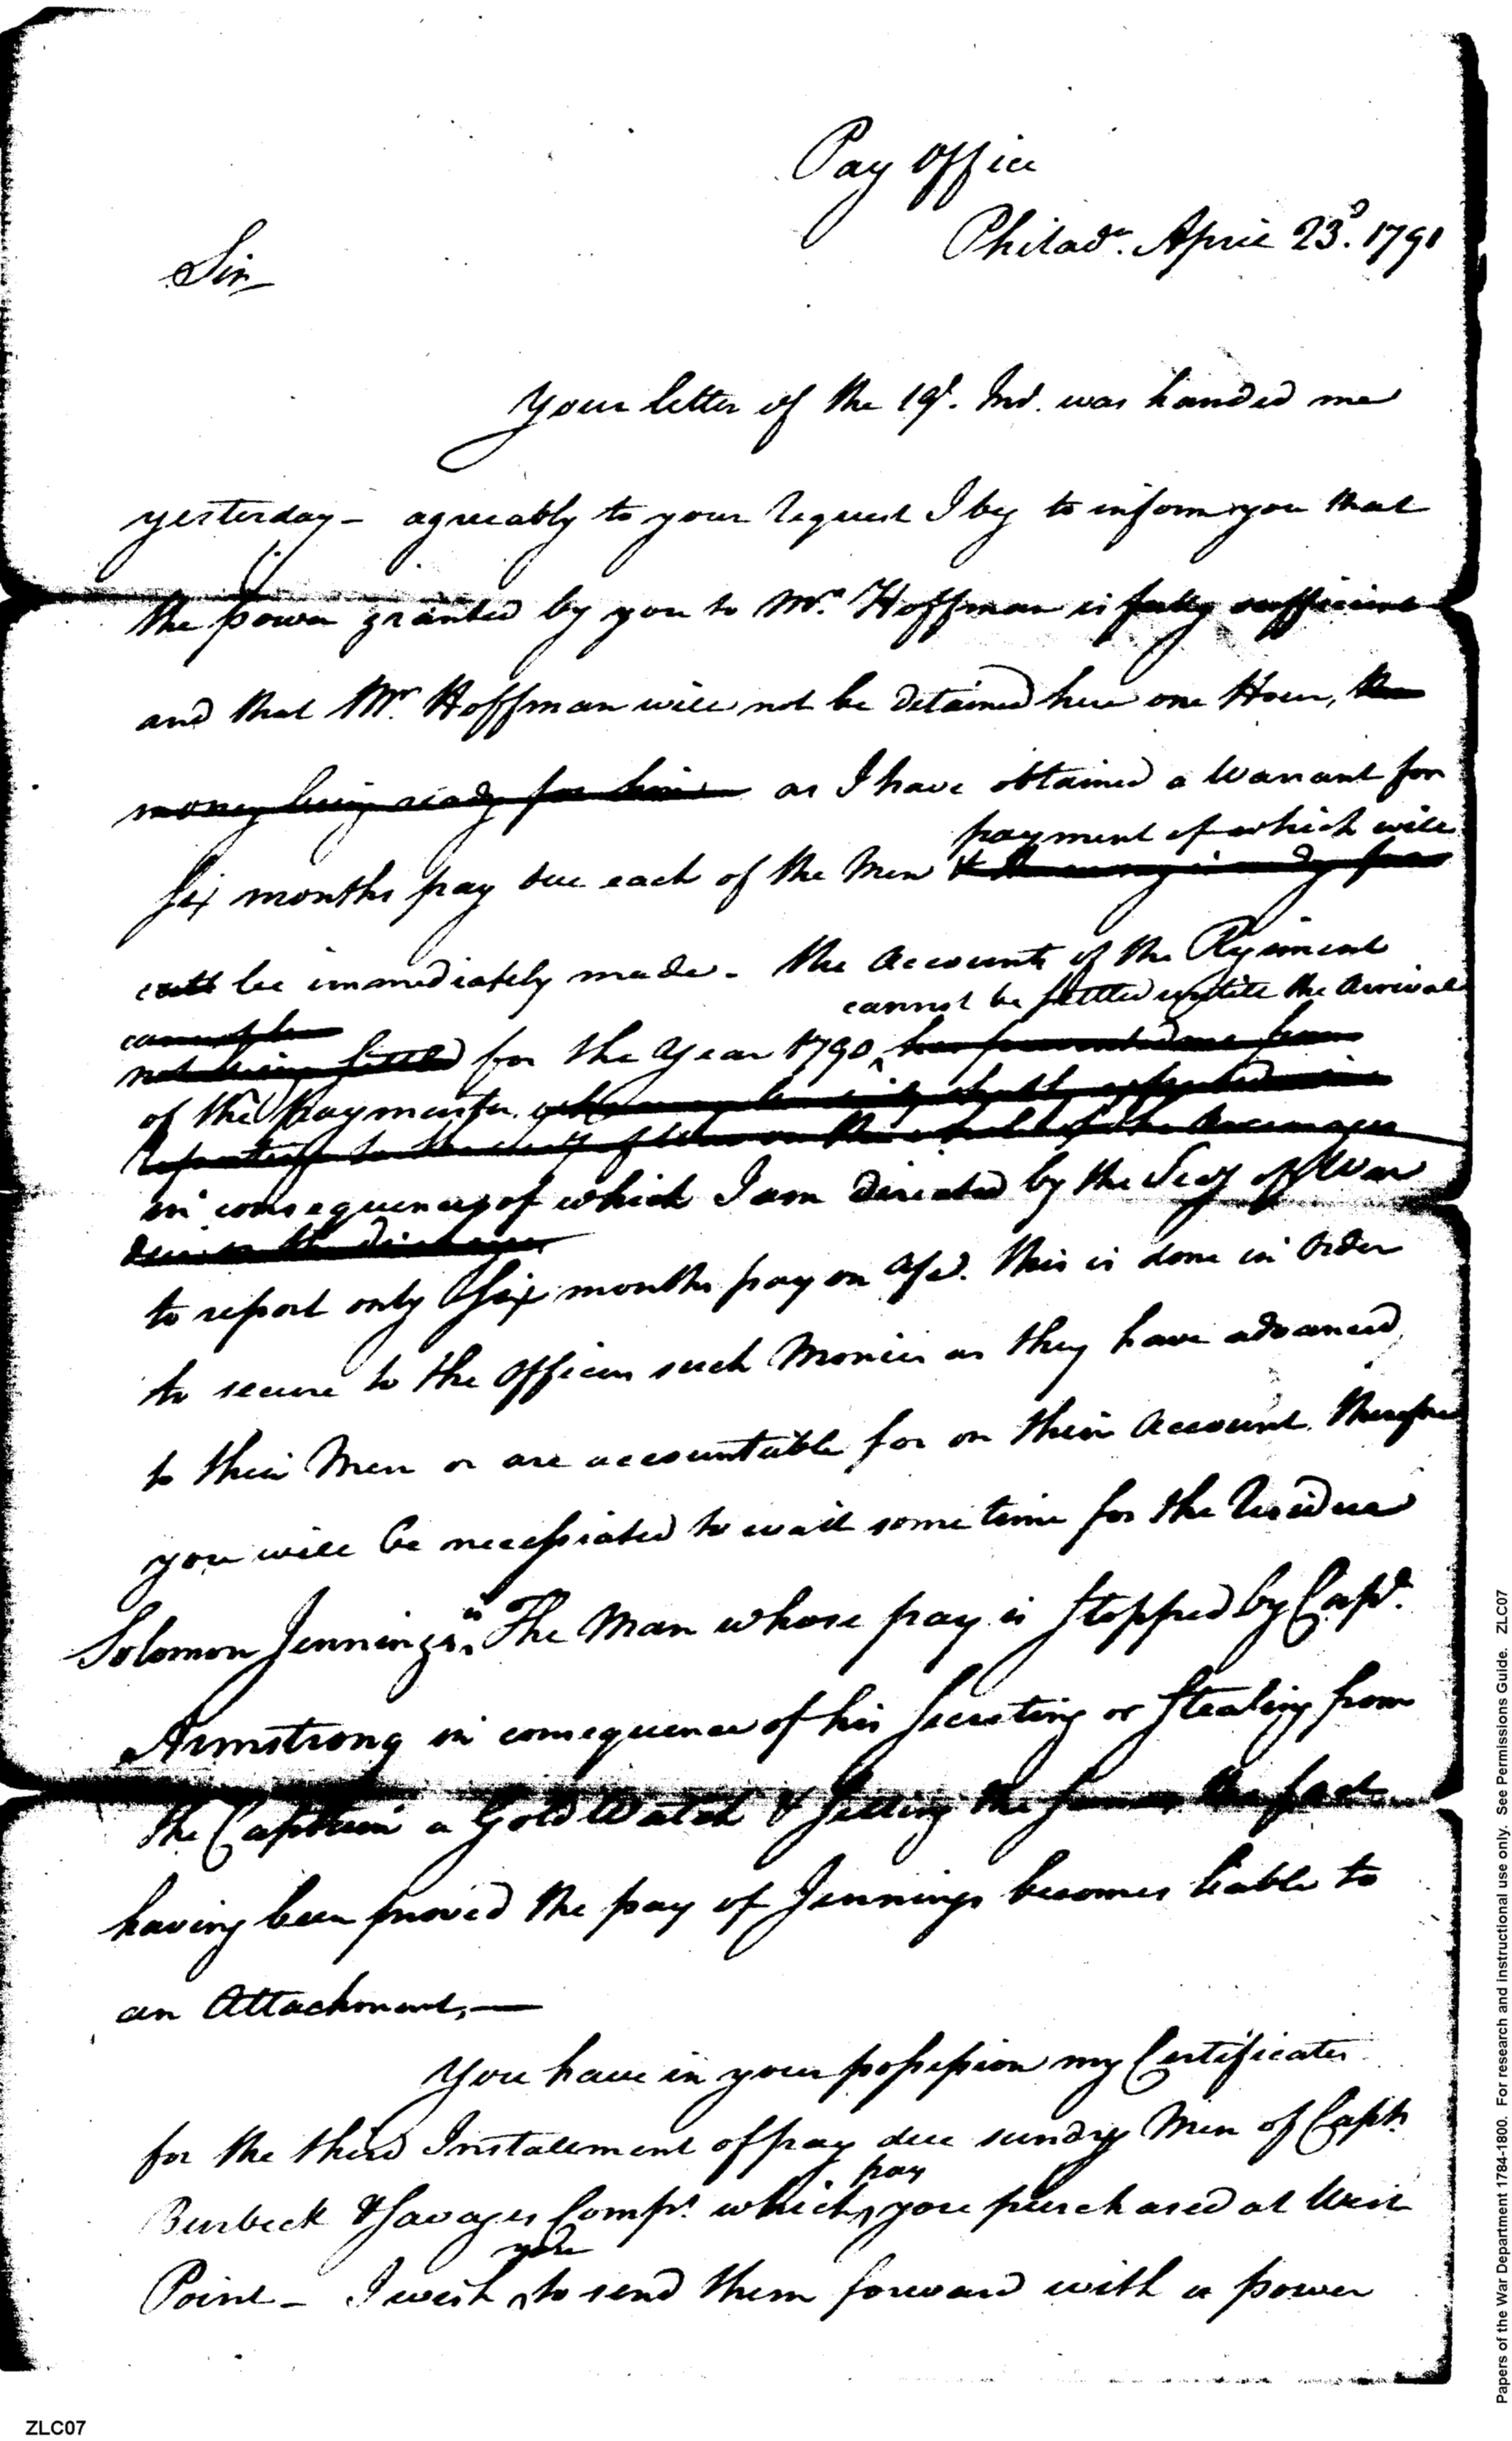 Pay Office
Philada. April 23d. 1791
Sir
Your letter of the 19t. Inst. was handed me
yesterday - agreeably to your request I beg to inform you that
the power granted by you to Mr. Hoffman is fully sufficient
and that Mr. Hoffman will not be detained here one Hour, the
money being ready for him as I have obtained a Warrant for
payment of which will
six months pay due each of the Men & the money is ready for
be immediately made - the Accounts of the Regiment
cannot be settled untill the Arrival
cannot be
not being settled for the Year 1790
of the Paymaster
in consequence of which I am directed by the Secy of War
due on the
to report only Six months pay on Acct. this is done in Order
to secure to the Officers such Monies as they have advanced
to their Men or are accountable for on their Account. therefore
you will be necessiated to wait some time for the Residue
Solomon Jennings "The Man whose pay is Stopped by Capt.
Armstrong in consequence of his Secreting or Stealing from
the Captain a Gold Watch & Selling the same the fact
having been proved the pay of Jennings becomes liable to
an Attachment, —
You have in your possession my Certificates
for the third Instalment of pay due sundry Men of Capts
pay
Burbeck & Savages Comps. which you purchased at West
you
Point - I wish to send them forward with a power
ZLC07
Papers of the War Department 1784-1800. For research and instructional use only. See Permissions Guide. ZLC07